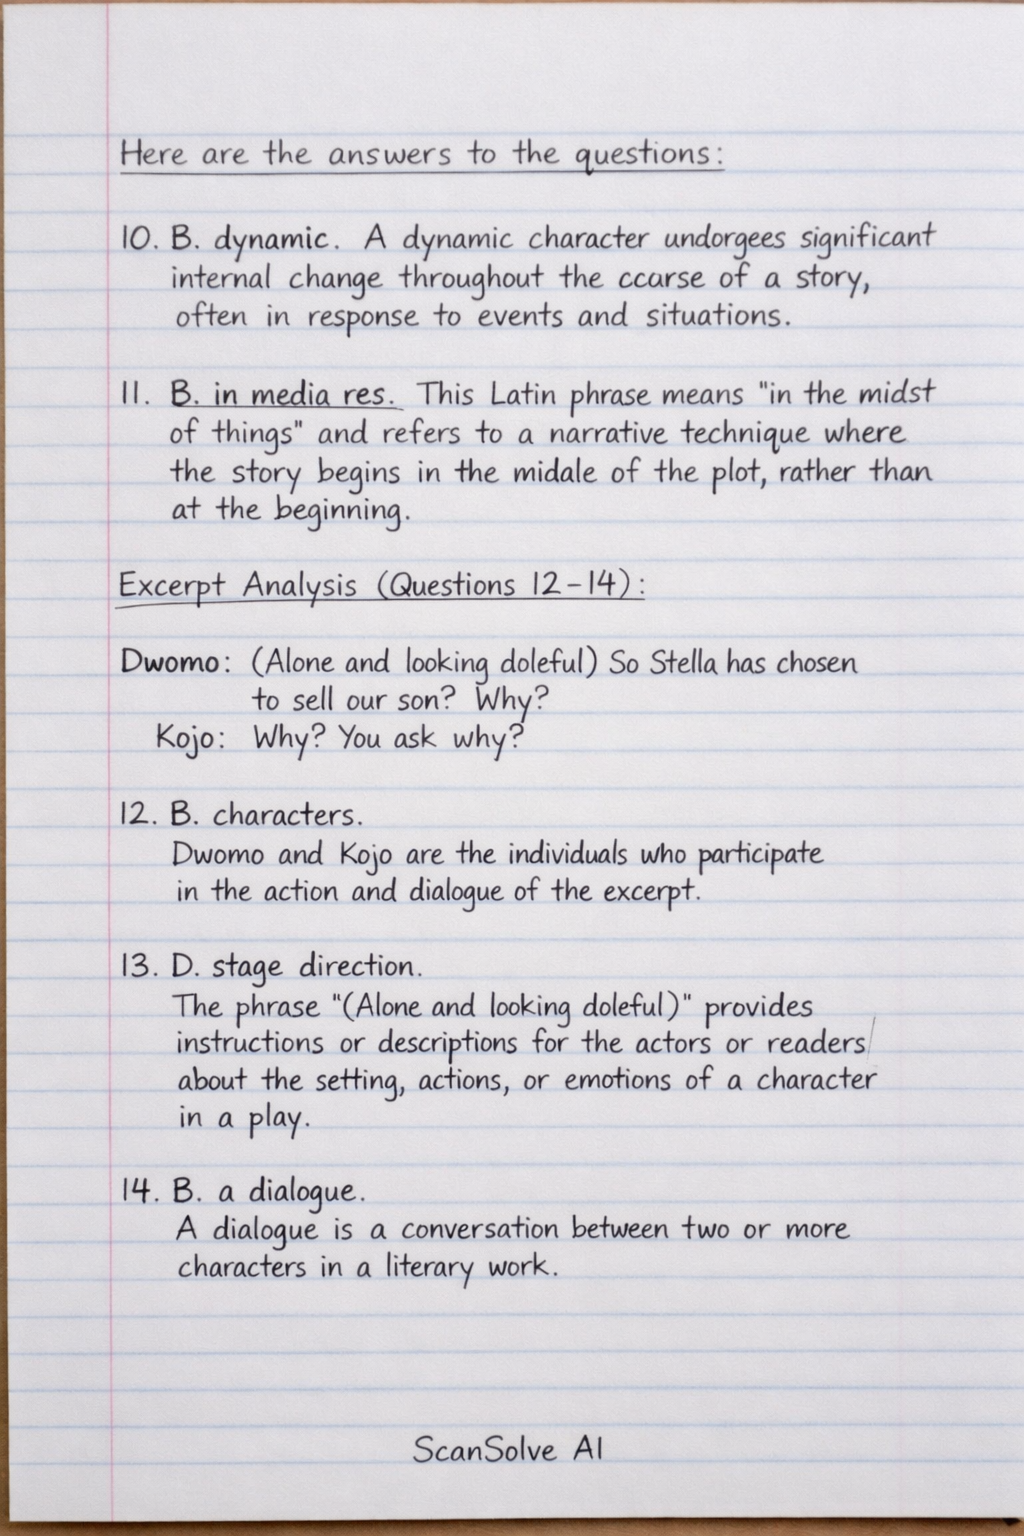 Here are the answers to the questions:
10. B. dynamic. A dynamic character undorgees significant
internal change throughout the ccurse of a story,
often in response to events and situations.
11. B. in media res. This Latin phrase means "in the midst
of things" and refers to a narrative technique where
the story begins in the midale of the plot, rather than
at the beginning.
Excerpt Analysis (Questions 12-14):
Dwomo: (Alone and looking doleful) So Stella has chosen
to sell our son? Why?
Kojo: Why? You ask why?
12. B. characters.
Dwomo and Kojo are the individuals who participate
in the action and dialogue of the excerpt.
13. D. stage direction.
The phrase "(Alone and looking doleful)" provides
instructions or descriptions for the actors or readers
about the setting, actions, or emotions of a character
in a play.
14. B. a dialogue.
A dialogue is a conversation between two or more
characters in a literary work.
ScanSolve AI